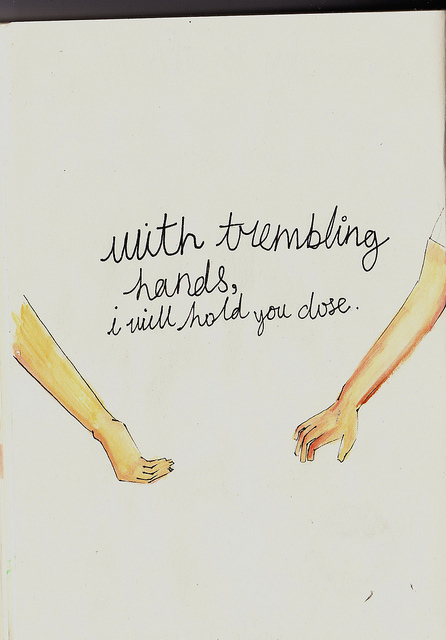 with trembling
hands,
i will hold you close.